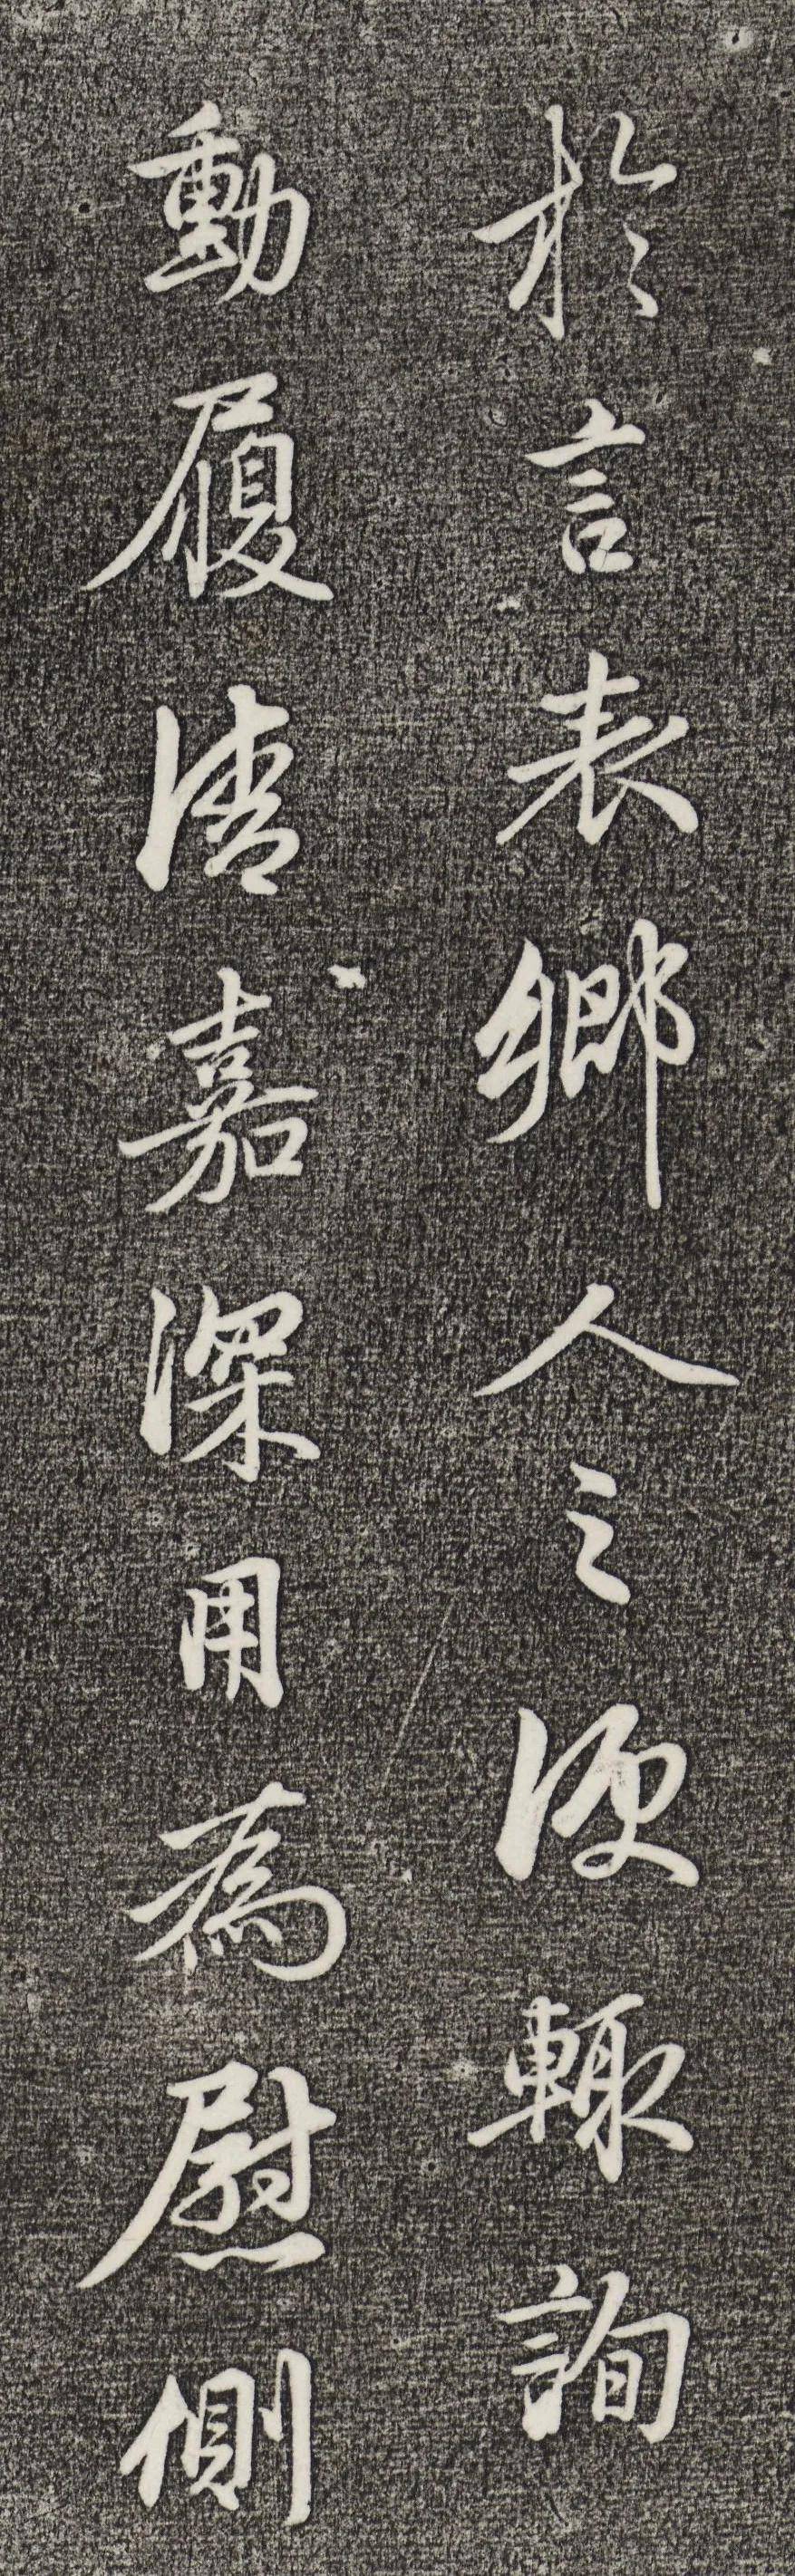 於言表鄉人之便輒詢
動履清嘉深用為慰側